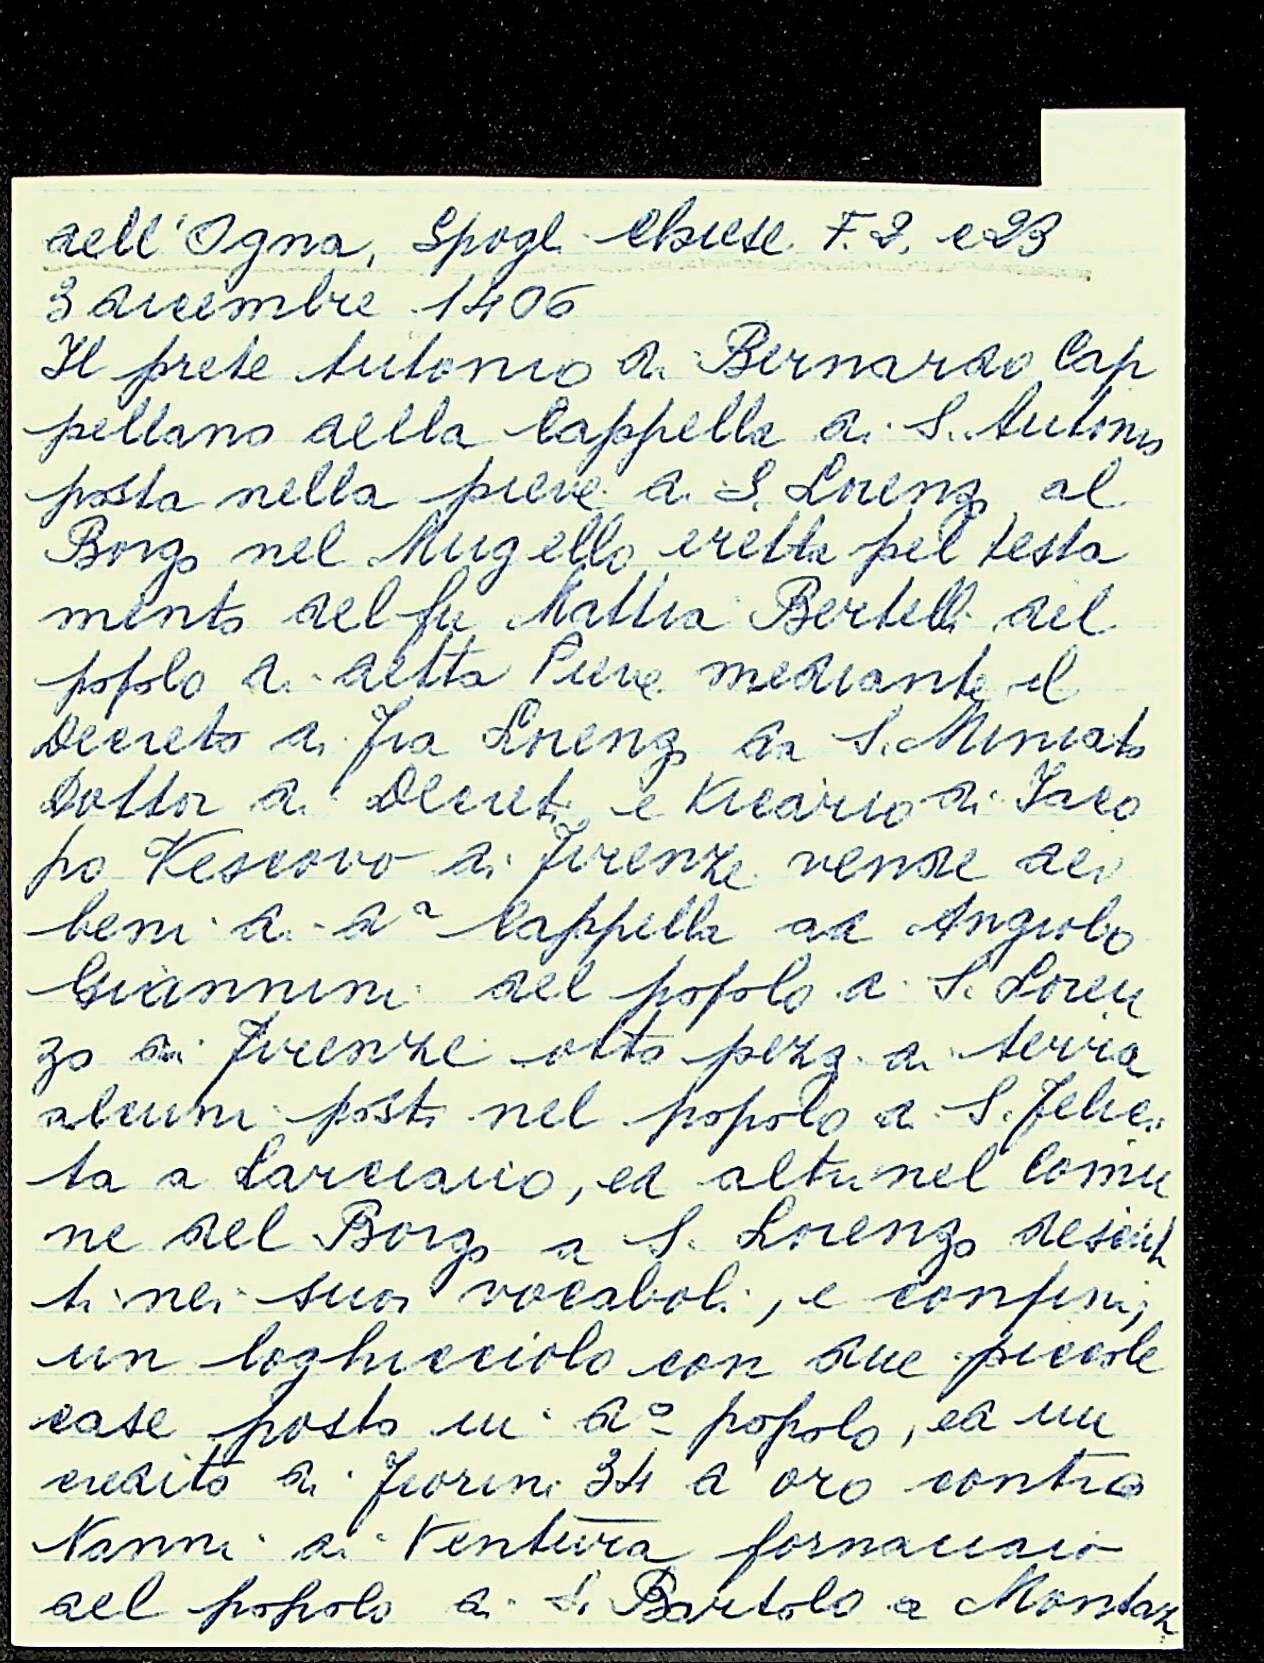 dell'Ogna, Spogl. Chiese F. 2. c 23
3 dicembre 1406
Il prete Antonio di Bernardo Cap
pellano della Cappella di S. Antonio
posta nella pieve di S. Lorenzo al
Borgo nel Mugello eretta pel testa
mento del fu Mattia Bertelli del
popolo di detta Pieve mediante il
Decreto di Fra Lorenzo da S. Miniato
Dottor di Decreti e Vicario di Jaco
po Vescovo di Firenze vende dei
beni di da Cappella ad Angiolo
Giannini del popolo di S. Loren
zo di Firenze otto pezzi di terra
alcuni posti nel popolo di S. Felici
ta a Larciano, ed altri nel Comu
ne del Borgo a S. Lorenzo descrit
ti nei suoi vocaboli, e confini,
un loghicciolo con due piccole
case posto in do popolo, ed un
credito di Fiorini 34 d'oro contro
Nanni di Ventura fornaciaio
del popolo di S. Bartolo a